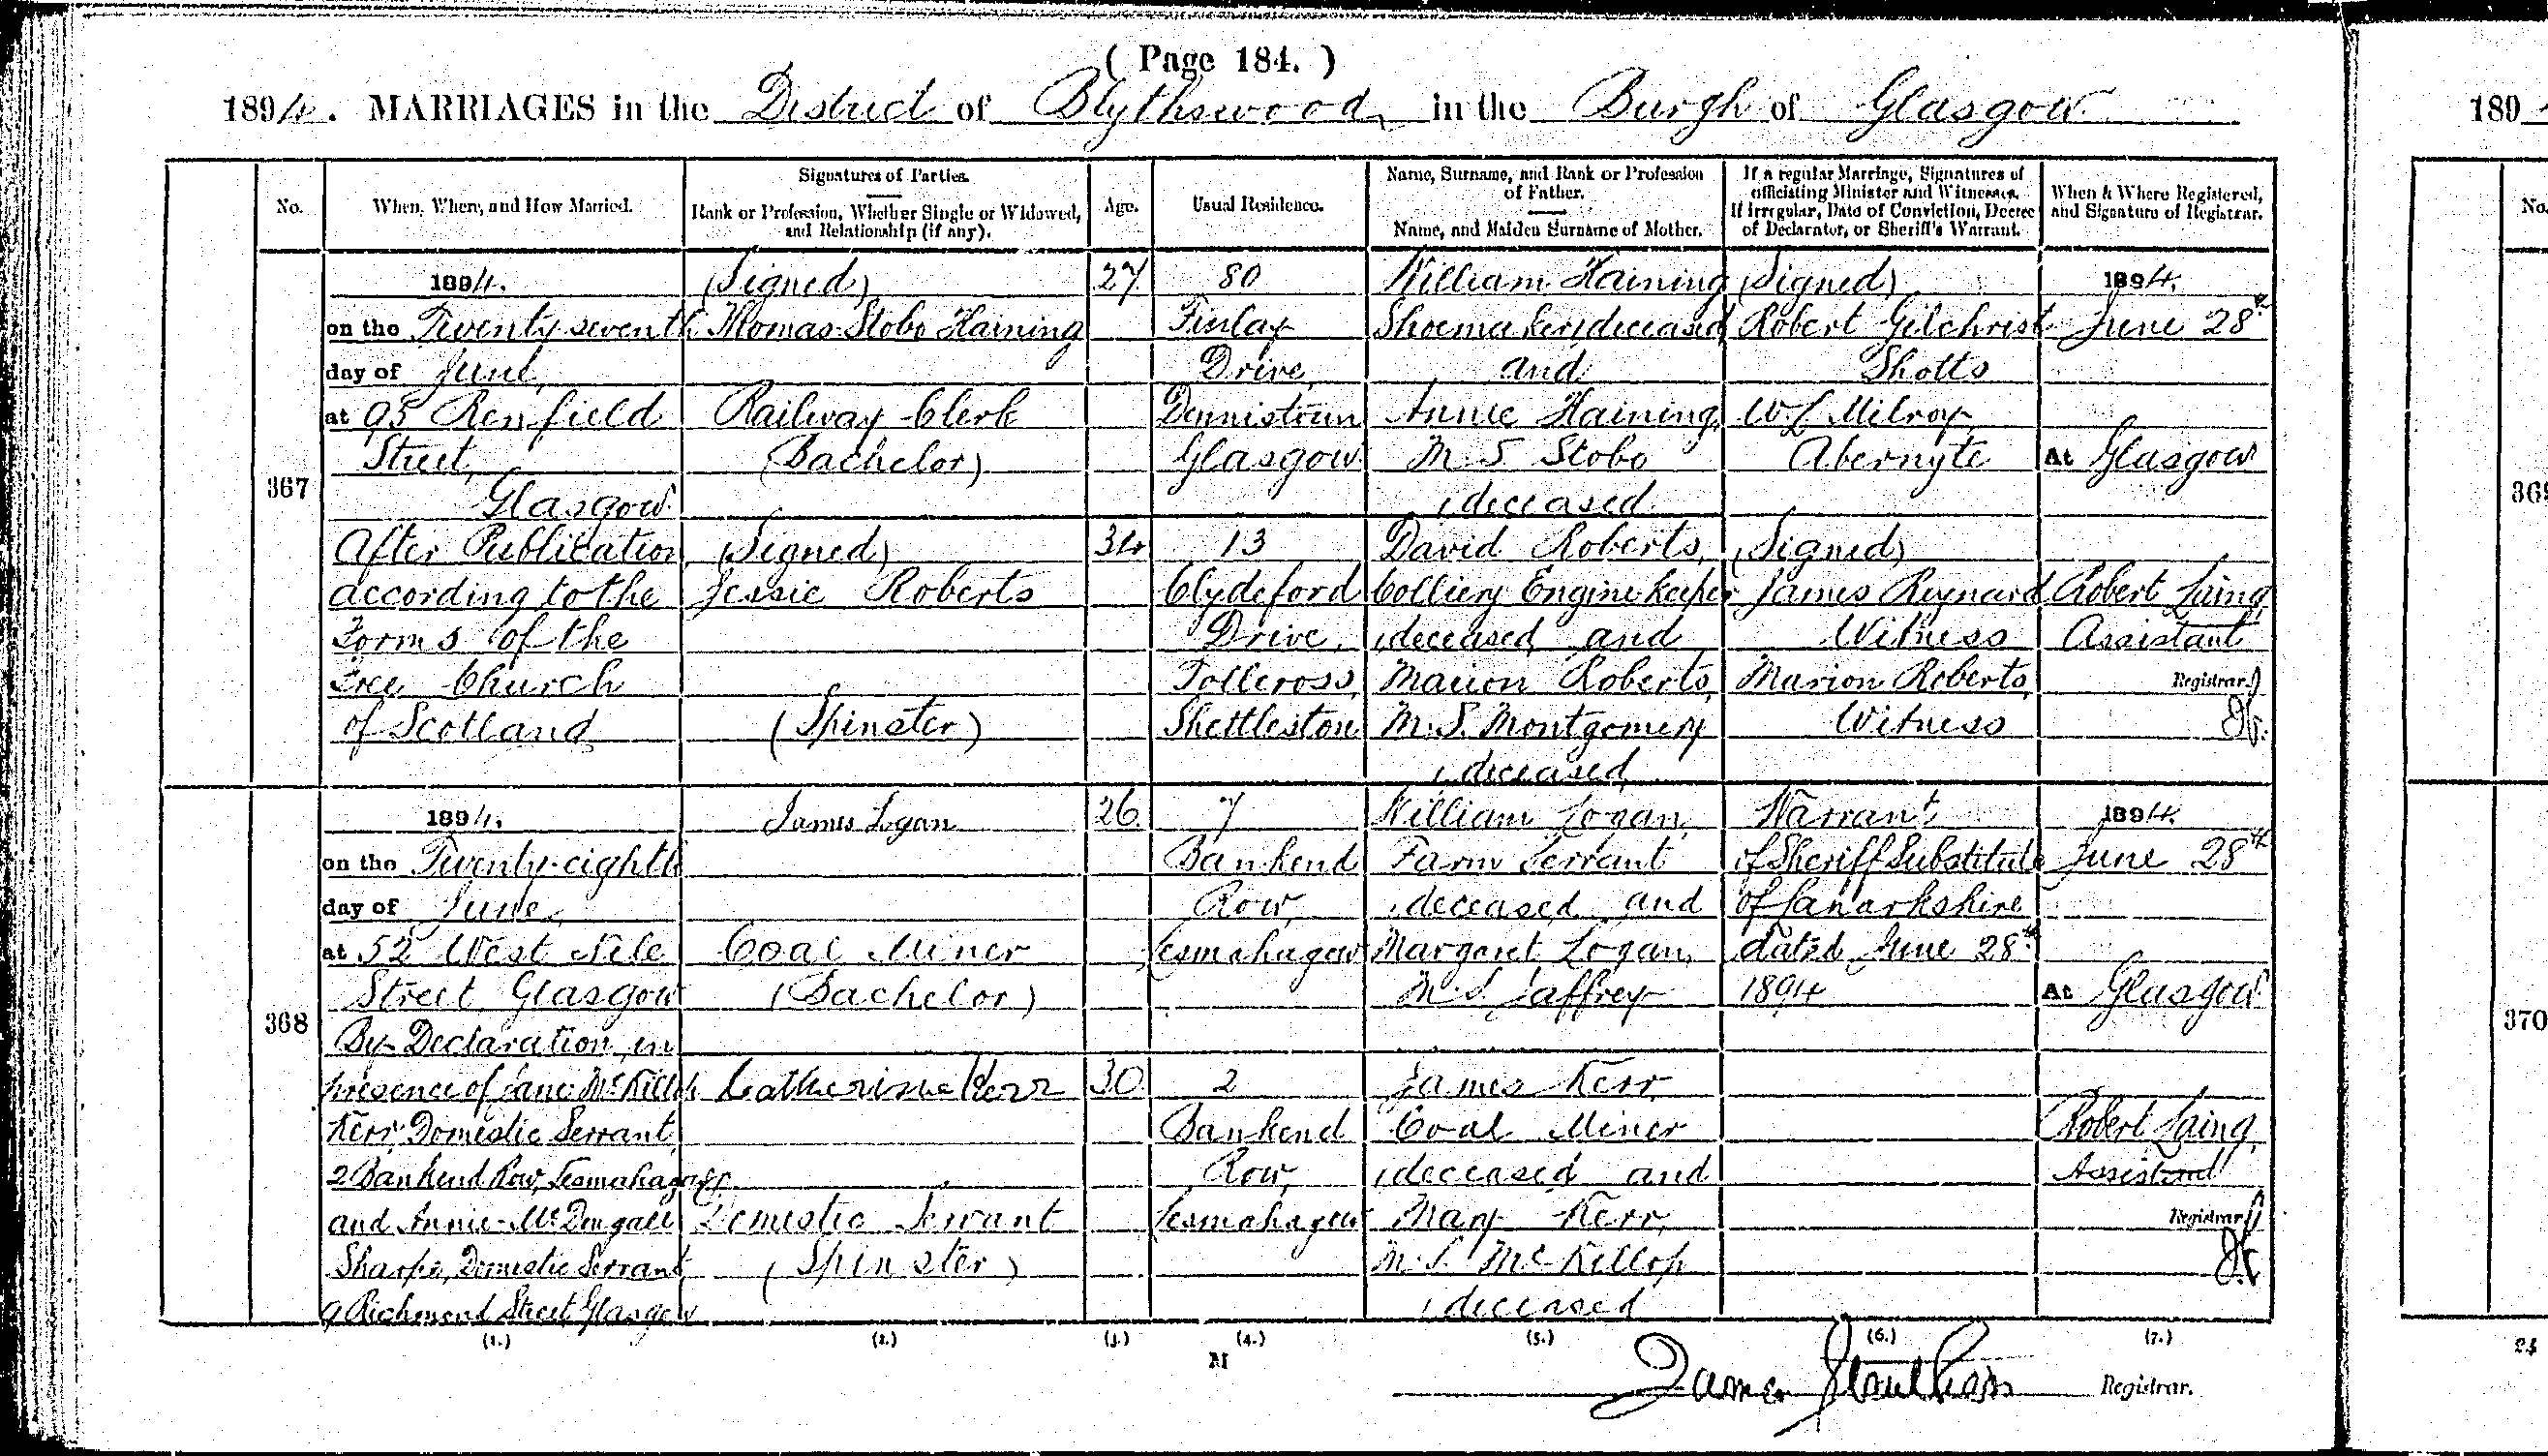 ( Page 184. )
1894. MARRIAGES in the District of Blythswood, in the Burgh of Glasgow
189
No.
When, Where, and How Married.
Signatures of Parties.
Rank or Profession, Whether Single or Widowed,
and Relationship (if any).
Age.
Usual Residence.
Name, Surname, and Rank or Profession
of Father.
Name, and Maiden Surname of Mother.
If a regular Marriage, Signatures of
officiating Minister and Witnesses.
If irregular, Date of Conviction, Decree
of Declarator, or Sheriff's Warrant.
When & Where Registered,
and Signature of Registrar.
No.
367
1894.
on the Twenty seventh
day of June,
at 95 Renfield
Street,
Glasgow.
After Publication
according to the
Forms of the
Free Church
of Scotland
(Signed)
Thomas Stobo Haining
Railway Clerk
(Bachelor)
(Signed)
Jessie Roberts
(Spinster)
27
34
80
Finlay
Drive,
Dennistoun
Glasgow.
13
Clydeford
Drive,
Tollcross,
Shettleston
William Haining
Shoemaker (deceased)
and
Annie Haining,
M.S. Stobo
(deceased)
David Roberts,
Colliery Engine keeper
(deceased) and
Marion Roberts,
M.S. Montgomery
(deceased)
(Signed)
Robert Gilchrist
Shotts
W L Milroy
Abernyte
(Signed)
James Reynard
Witness
Marion Roberts,
Witness
1894.
June 28th
At Glasgow
Robert Laing,
Assistant
Registrar.
368
1894.
on the Twenty-eighth
day of June,
at 52 West Nile
Street, Glasgow
By Declaration, in
presence of Jane McKillop
Kerr, Domestic Servant,
2 Bankend Row, Lesmahagow.
and Annie McDougall
Sharpe, Domestic Servant
9 Richmond Street, Glasgow
James Logan
Coal Miner
(Bachelor)
Catherine Kerr
Domestic Servant
(Spinster)
26
30
7
Bankend
Row,
Lesmahagow
2
Bankend
Row,
Lesmahagow
William Logan,
Farm Servant
(deceased) and
Margaret Logan,
M.S. Jaffrey
James Kerr,
Coal Miner
(deceased) and
Mary Kerr,
M.S. McKillop
(deceased)
Warrant
of Sheriff Substitute
of Lanarkshire
dated June 28th
1894
1894.
June 28th
At Glasgow
Robert Laing,
Assistant
Registrar.
370
(1.) (2.) (3.) (4.) (5.) (6.) (7.)
M
24
James
Registrar.